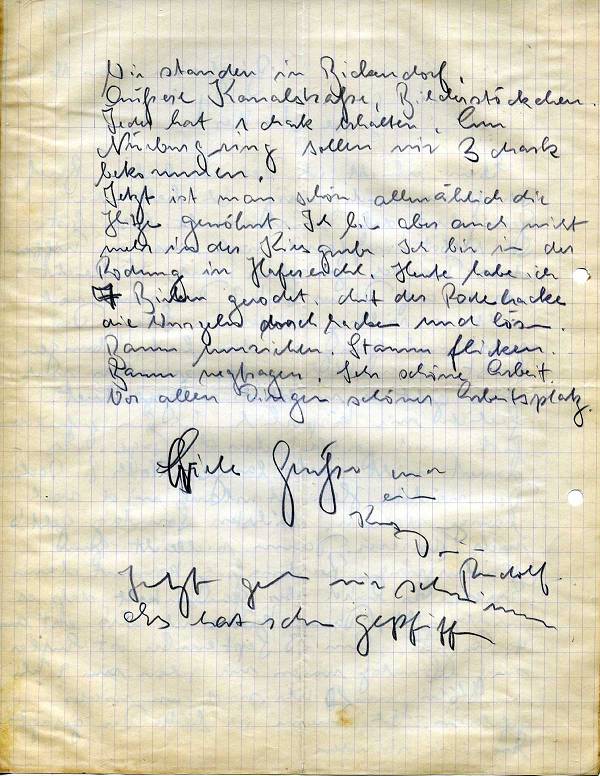 Wir standen in Bickendorf,
Äußere Kanalstraße, Bilderstöckchen.
Jeder hat 1 Mark erhalten. Am
Nürburgring sollen wir 3 Mark
bekommen.
Jetzt ist man schon allmählich die
Hitze gewöhnt. Ich bin aber auch nicht
mehr in der Kiesgrube. Ich bin in der
Rodung in. Heute habe ich
7 Birken gerodet. Mit der Rodehacke
die Wurzeln durchhacken und lösen.
Baum umziehen. Stamm
Baum wegtragen. Sehr schöne Arbeit.
Vor allen Dingen schöner Arbeitsplatz.
Viele Grüße und
ein
Kuss
Dein
Rudolf.
Jetzt gehn wir schwimmen
es hat schon gepfiffen